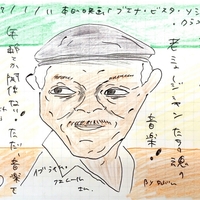 1/1/11 あの映画「ブエナ・ビスタ・ソシ
クラブ
老ミュージシャンたちの魂の
音楽!
年齢とか関係ない ただ、音楽で
イブライム・
フェレール
さん。
By